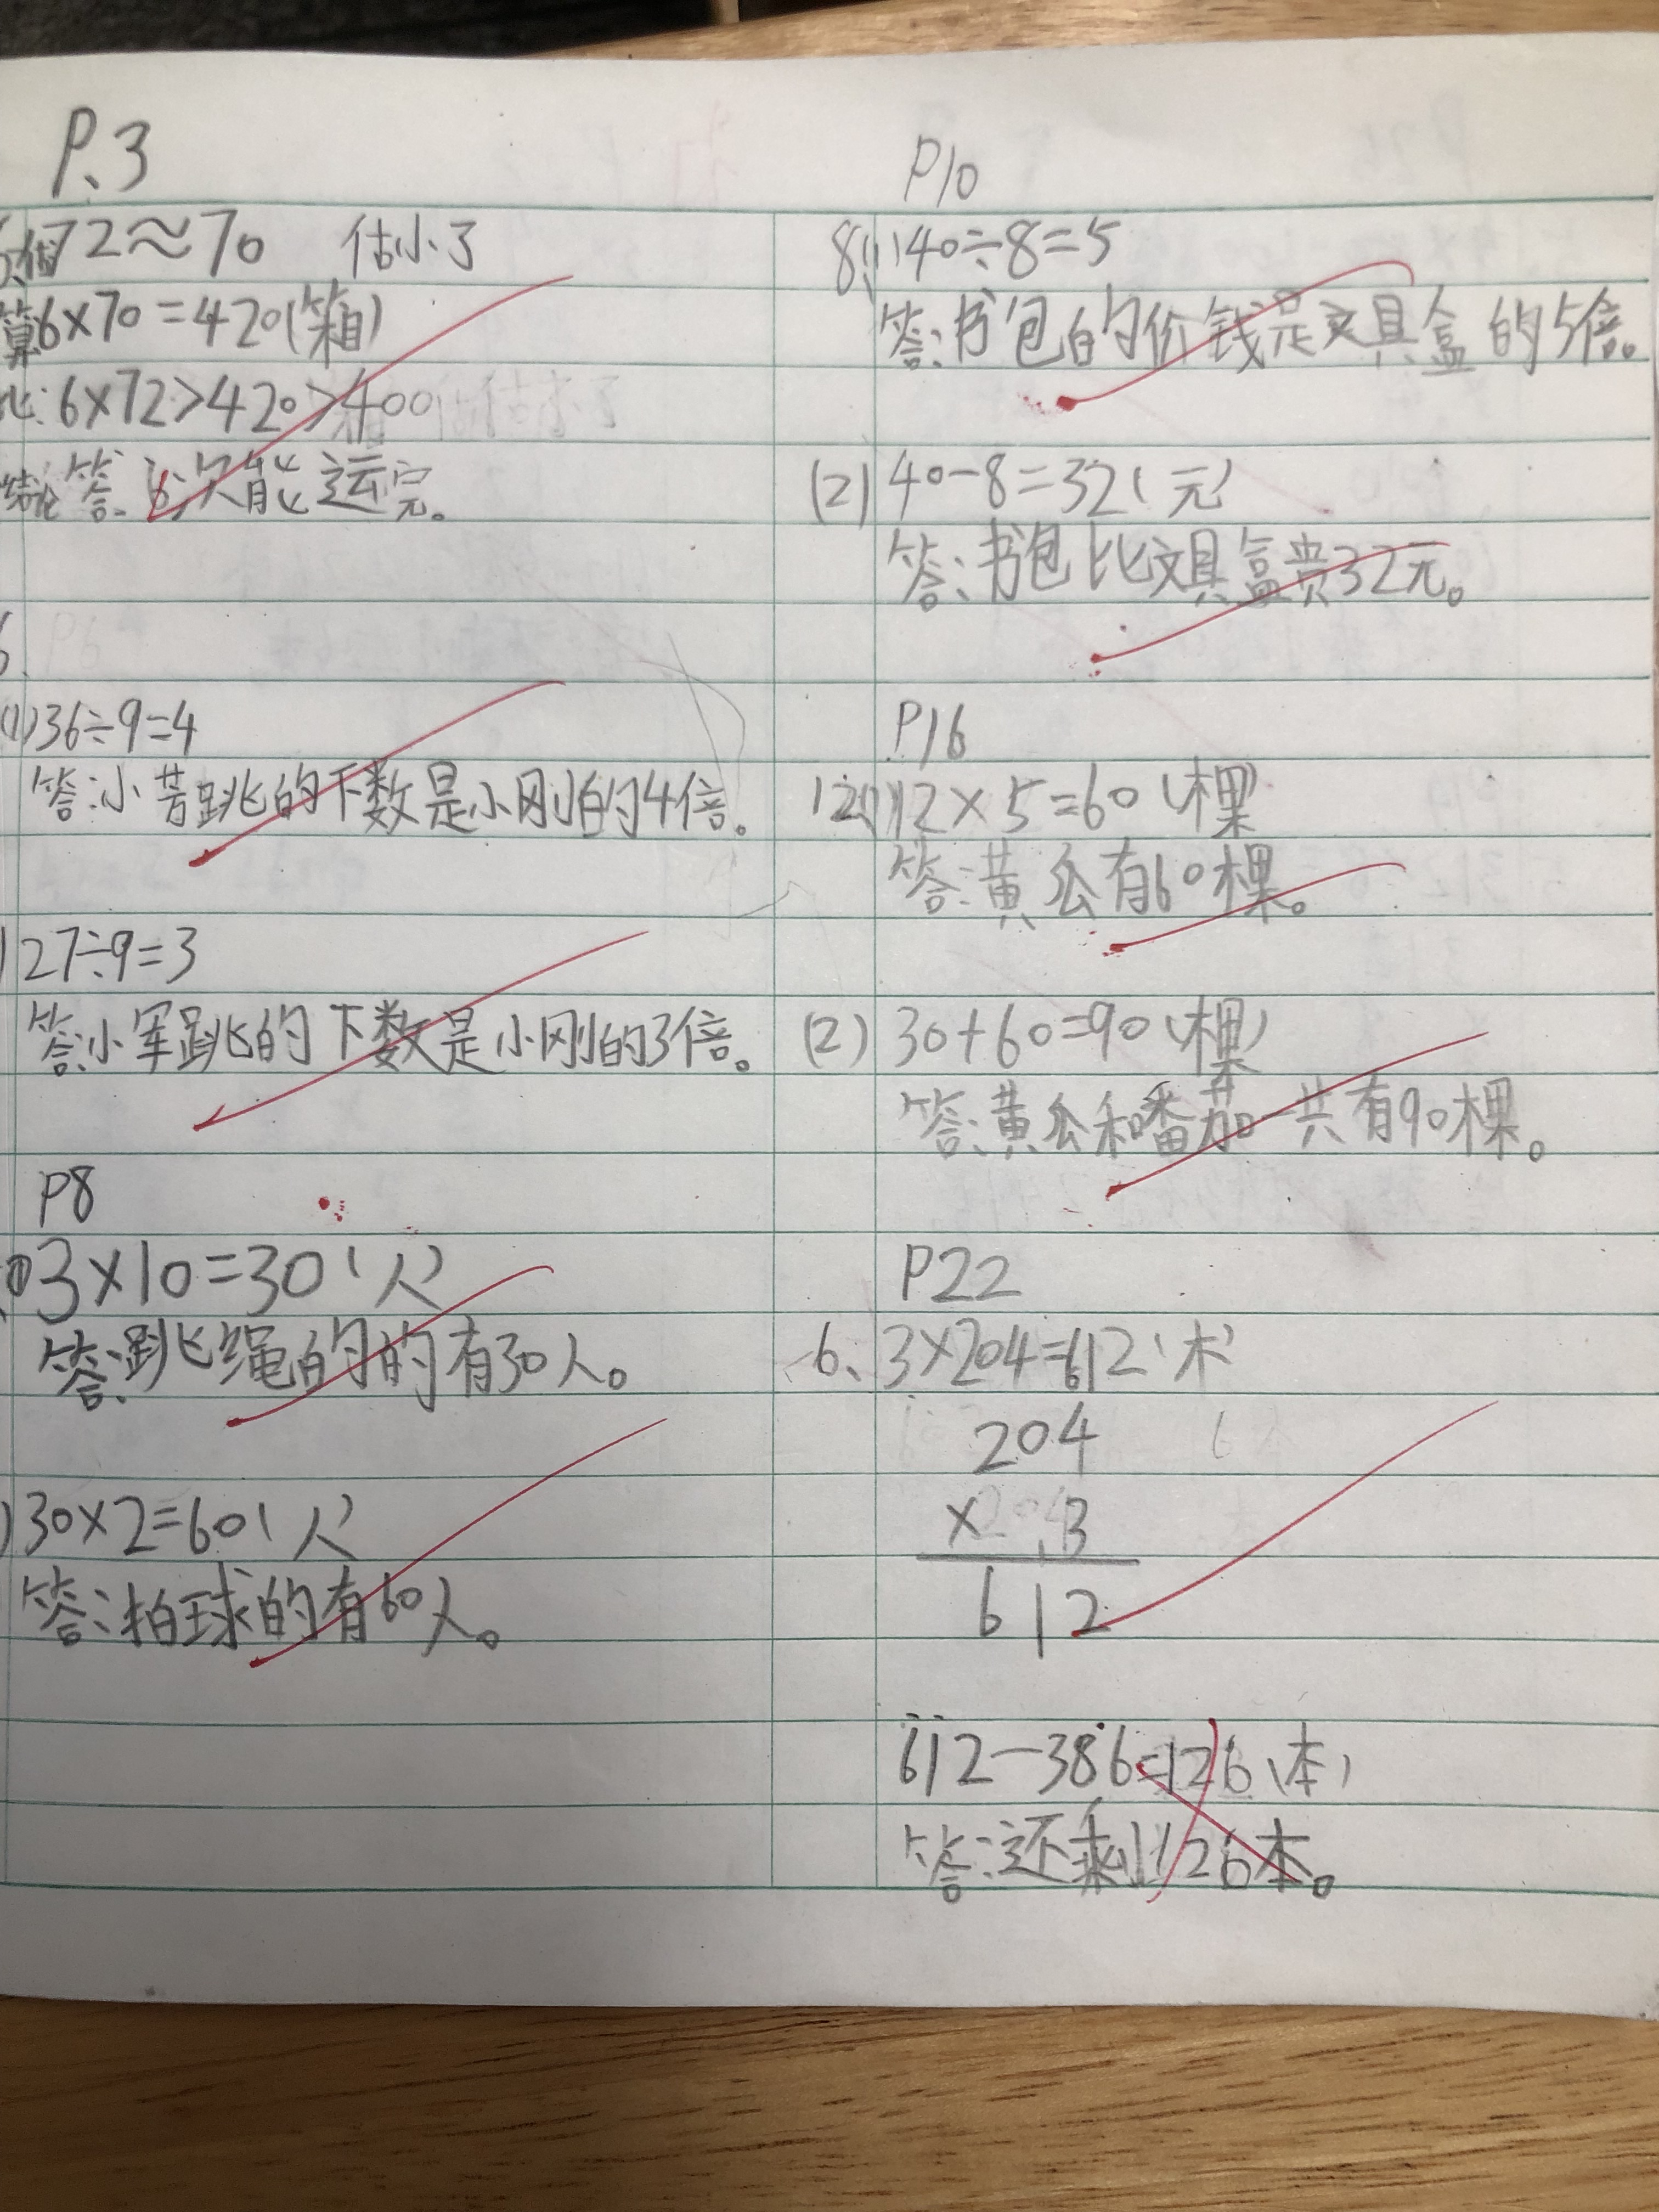 P.3
72≈70 估小了
算6×70=420(箱)
比:6×72>420>400
结论答:6次能运完。
(1)36÷9=4
答:小芳跳的下数是小刚的4倍。
27÷9=3
答:小军跳的下数是小刚的3倍。
P8
3×10=30(人)
答:跳绳的的有30人。
30×2=60(人)
答:拍球的有60人。
P10
8(1)40÷8=5
答:书包的价钱是文具盒的5倍。
(2)40-8=32(元)
答:书包比文具盒贵32元。
P16
12(1)12×5=60(棵)
答:黄瓜有60棵。
(2)30+60=90(棵)
答:黄瓜和番茄一共有90棵。
P22
6、3×204=612(本)
204
×3
612
612-386=126(本)
答:还剩126本。